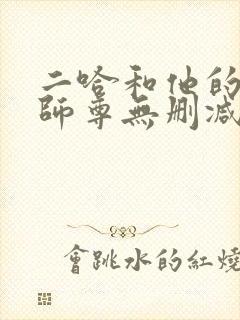 二哈和他的
師尊無刪減
會跳水的紅燒